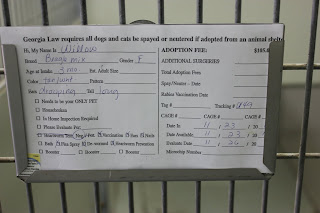 Georgia Law requires all dogs and cats be spayed or neutered if adopted from an animal shelt
Hi, My Name is Willow
Breed Beagle mix Gender F
Age at Intake 3 mo Est. Adult Size
Color tan/wht Pattern
Ears drooping Tail long
Needs to be your ONLY PET
Housebroken
In Home Inspection Required
Please Evaluate For:
Heartworm Test: Neg / Pos Vaccination
Bath Flea Spray De-wormed Heartworm Prevention
Booster Booster Booster
ADOPTION FEE: $105.0
ADDITIONAL SURGERIES
Total Adoption Fees
Spay/Neuter – Date
Rabies Vaccination Date
Tag # Tracking #
CAGE # CAGE # CAGE #
Date In 11 / 23 / 20
Date Available 11 / 23 / 20
Evaluate Date 11 / 26 / 20
Microchip Number